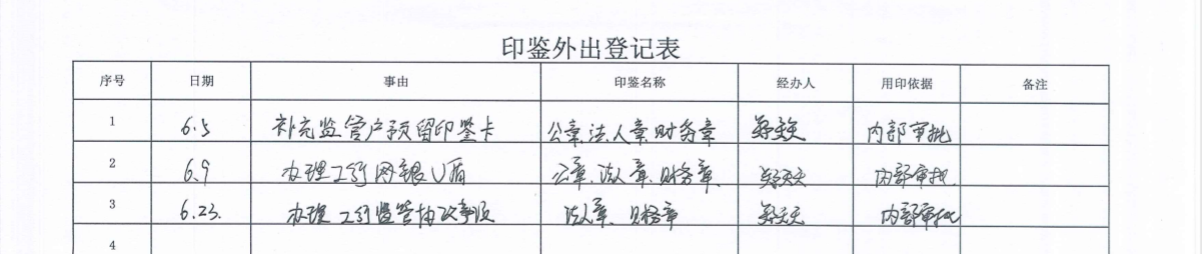 印鉴外出登记表
序号 日期 事由 印鉴名称 经办人 用印依据 备注
1 6.5 补充监管户预留印鉴卡 公章、法人章、财务章 内部审批
2 6.9 办理工行网银U盾 公章、法人章、财务章 内部审批
3 6.23. 办理工行监管 法人章、财务章 内部审批
4